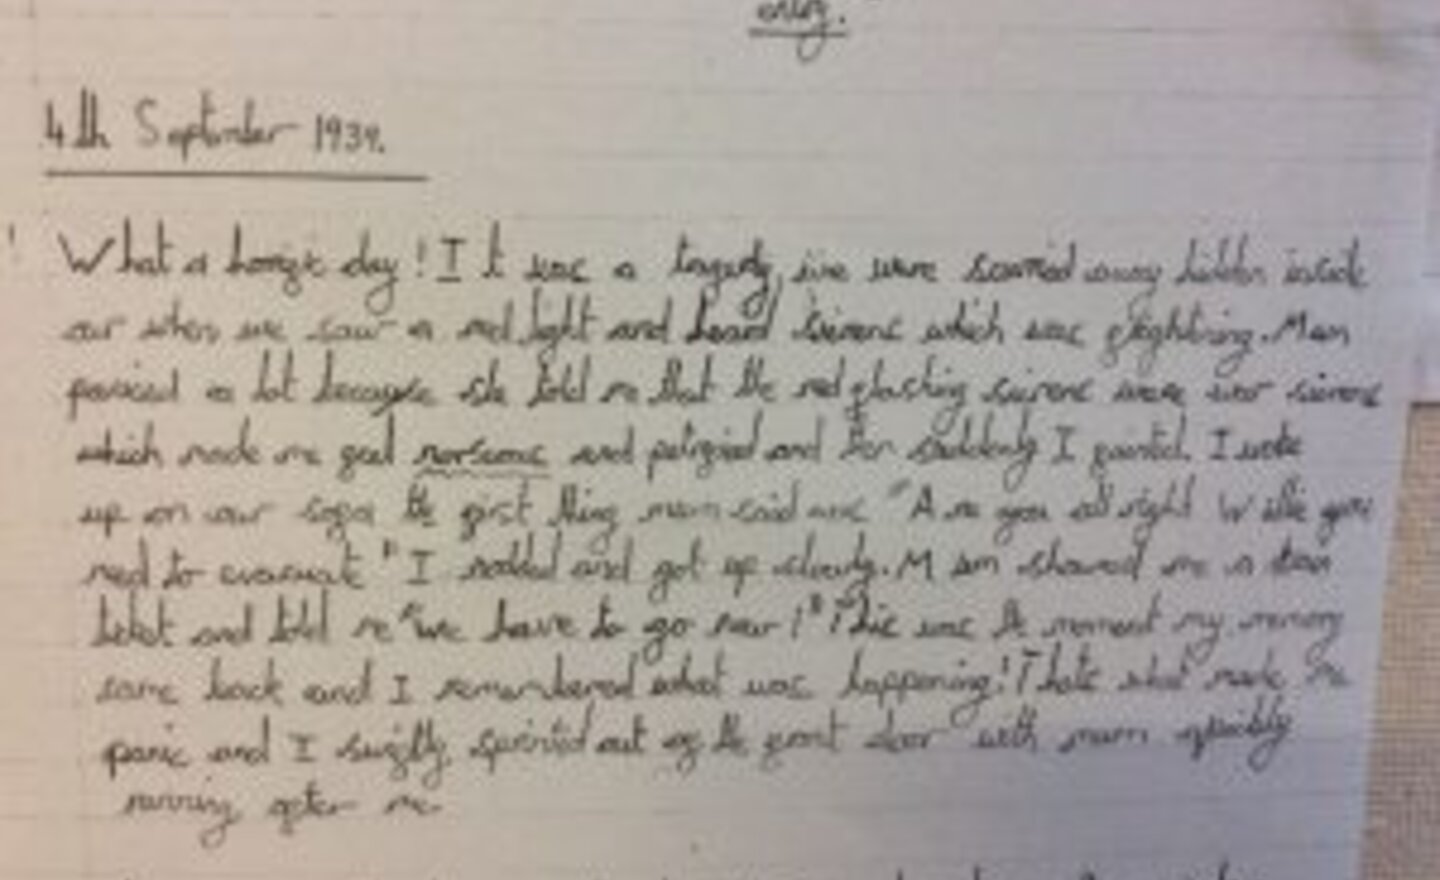 entry.
4th September 1939.
What a horrific day! It was a tragedy, we were scurried away hidden inside
our when we saw a red light and heard sierens which was frightning. Mum
paniced a lot because she told me that the red flashing sierens were war sierens
which made me feel norseous and petrified and then suddenly I fainted. I woke
up on our sofa the first thing mum said was "Are you all right Willie you
need to evacuate" I nodded and got up slowly. Mum showed me a train
ticket and told me "we have to go now!" This was the moment my memory
came back and I remembered what was happening! Thats what made me
panic and I swiftly sprinted out of the front door with mum quickly
running after me